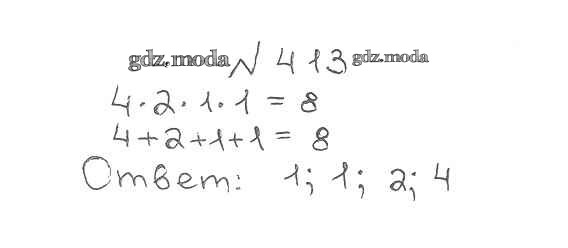 gdz.moda № 413 gdz.moda
4 · 2 · 1 · 1 = 8
4 + 2 + 1 + 1 = 8
Ответ: 1; 1; 2; 4